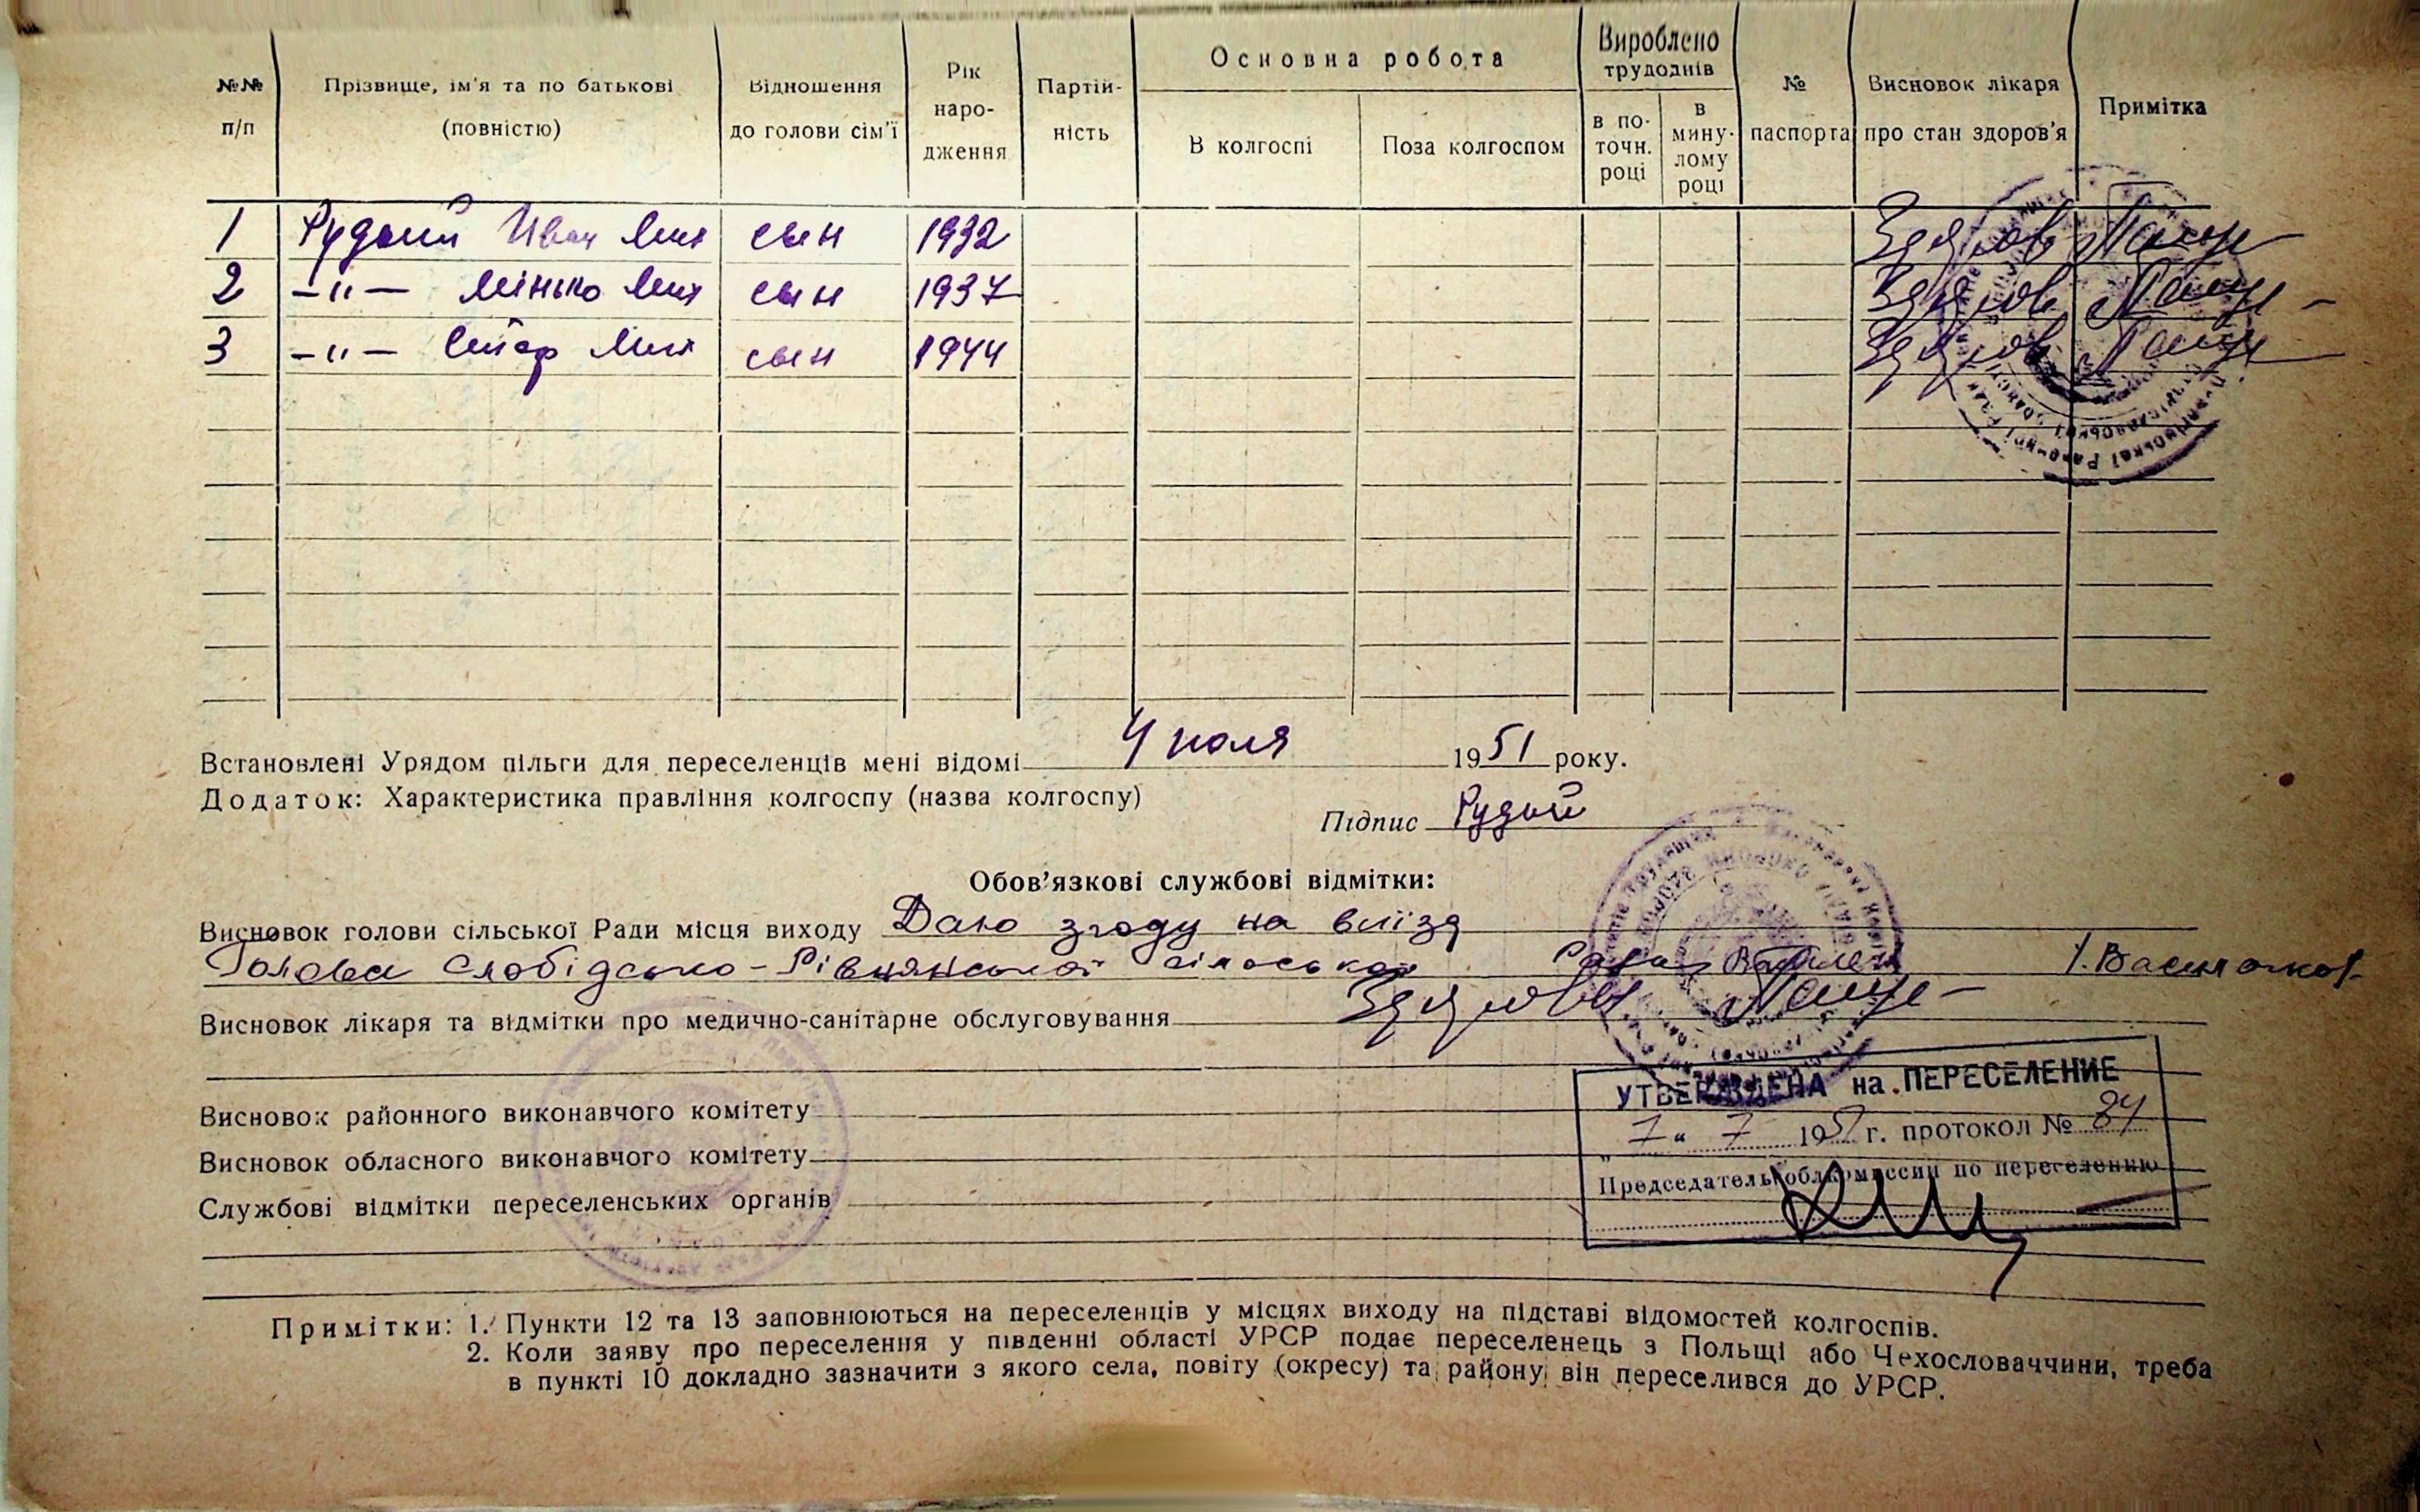 №№ п/п Прізвище, ім'я та по батькові (повністю) Відношення до голови сім'ї Рік наро-дження Партій-ність Основна робота В колгоспі Поза колгоспом Вироблено трудоднів в по-точн. році в мину-лому році № паспорта Висновок лікаря про стан здоров'я Примітка
1 Рудый Иван Мих сын 1932
2 -"- Мінько Мих сын 1937
3 -"- Мих сын 1944
Встановлені Урядом пільги для переселенців мені відомі 4 июля 1951 року.
Додаток: Характеристика правління колгоспу (назва колгоспу)
Підпис Рудый
Обов'язкові службові відмітки:
Висновок голови сільської Ради місця виходу Даю згоду на виїзд
Голова Слобідсько-Рівнянської сільської
Висновок лікаря та відмітки про медично-санітарне обслуговування
Висновок районного виконавчого комітету
Висновок обласного виконавчого комітету
Службові відмітки переселенських органів
УТВЕРЖДЕНА на ПЕРЕСЕЛЕНИЕ
"7" 7 1951 г. протокол № 84
Председатель облкомиссии по переселению
Примітки: 1. Пункти 12 та 13 заповнюються на переселенців у місцях виходу на підставі відомостей колгоспів.
2. Коли заяву про переселення у південні області УРСР подає переселенець з Польщі або Чехословаччини, треба
в пункті 10 докладно зазначити з якого села, повіту (окресу) та району він переселився до УРСР.